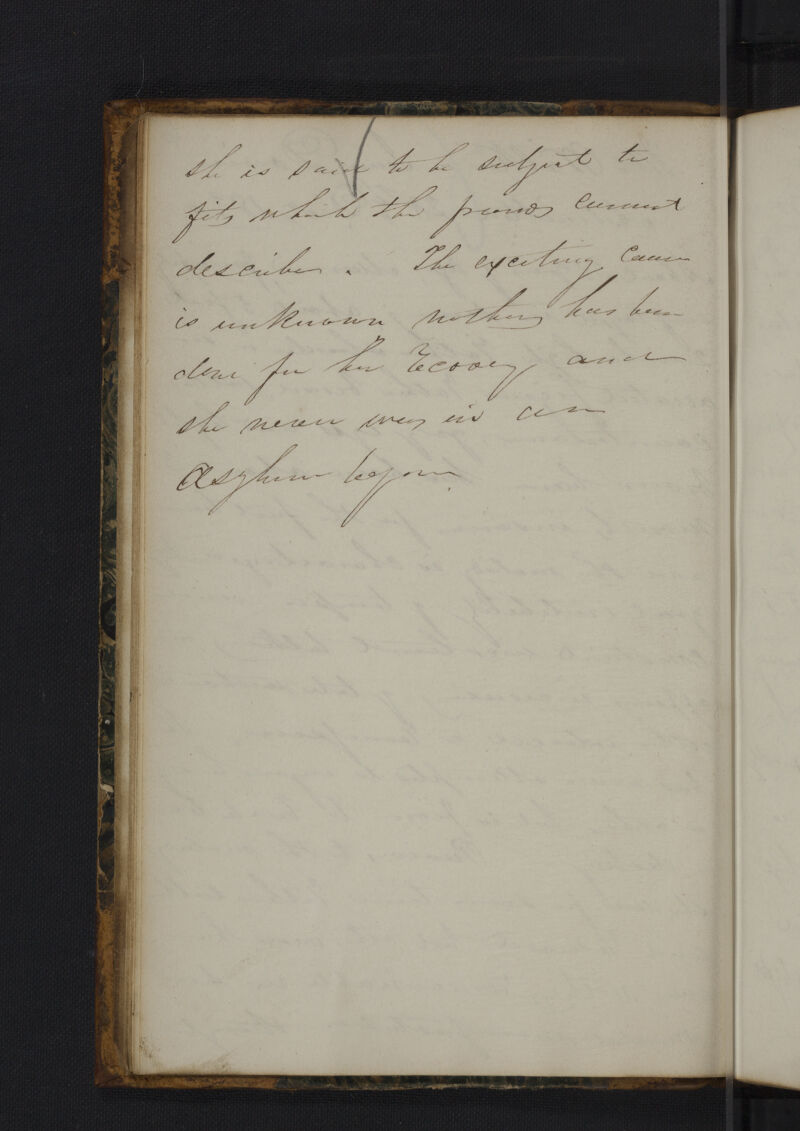 she is said to be subject to
fits which the friends cannot
describe. The exciting cause
is unknown nothing has been
done for her recovery and
she never was in an
asylum before